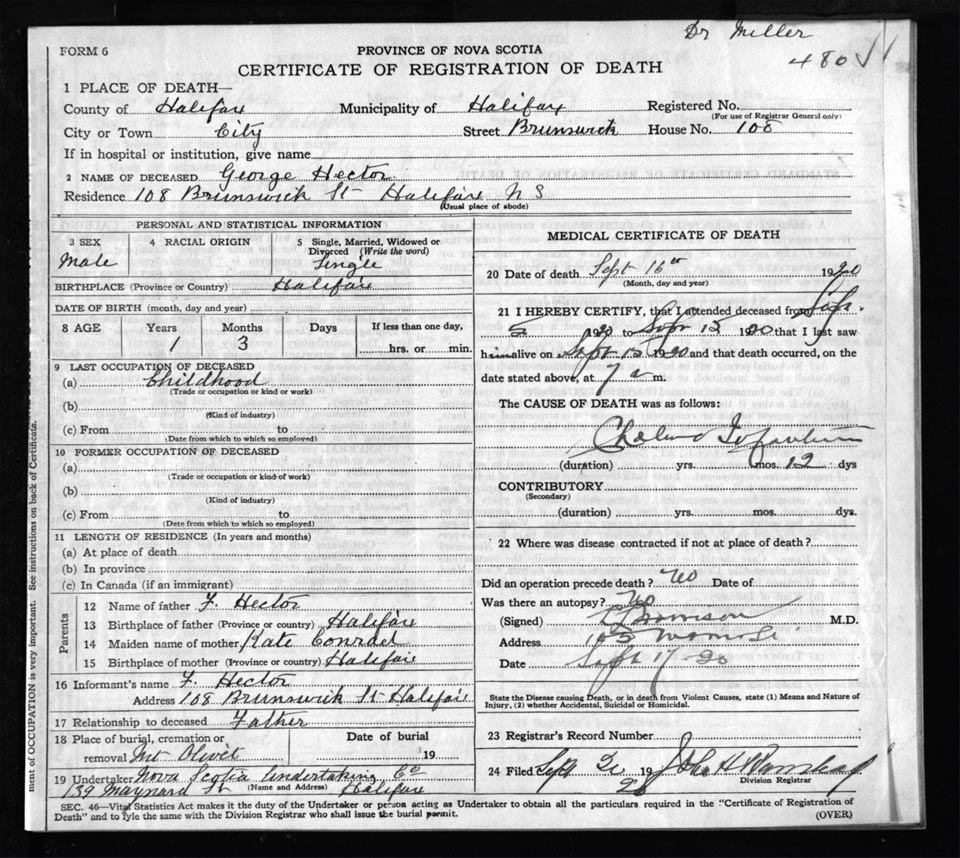 Dr Miller
480
FORM 6
PROVINCE OF NOVA SCOTIA
CERTIFICATE OF REGISTRATION OF DEATH
1 PLACE OF DEATH—
County of Halifax Municipality of Halifax Registered No.
(For use of Registrar General only)
City or Town City Street Brunswick House No. 108
If in hospital or institution, give name
2 NAME OF DECEASED George Hector
Residence 108 Brunswick St Halifax N S
(Usual place of abode)
PERSONAL AND STATISTICAL INFORMATION
3 SEX 4 RACIAL ORIGIN 5 Single, Married, Widowed or
Divorced (Write the word)
Male Single
BIRTHPLACE (Province or Country) Halifax
DATE OF BIRTH (month, day and year)
8 AGE Years Months Days If less than one day,
1 3 hrs. or min.
9 LAST OCCUPATION OF DECEASED
(a) Childhood
(Trade or occupation or kind or work)
(b)
(Kind of industry)
(c) From to
(Date from which to which so employed)
10 FORMER OCCUPATION OF DECEASED
(a)
(Trade or occupation or kind of work)
(b)
(Kind of industry)
(c) From to
(Date from which to which so employed)
11 LENGTH OF RESIDENCE (In years and months)
(a) At place of death
(b) In province
(c) In Canada (if an immigrant)
Parents
12 Name of father F. Hector
13 Birthplace of father (Province or country) Halifax
14 Maiden name of mother Kate Conrad
15 Birthplace of mother (Province or country) Halifax
16 Informant's name F. Hector
Address 108 Brunswick St Halifax
17 Relationship to deceased Father
18 Place of burial, cremation or Date of burial
removal Mt Olivet 19
19 Undertaker Nova Scotia Undertaking Co
139 Maynard St (Name and Address) Halifax
MEDICAL CERTIFICATE OF DEATH
20 Date of death Sept 16th 1920
(Month, day and year)
21 I HEREBY CERTIFY, that I attended deceased from Sept.
5 1920 to Sept 15 1920 that I last saw
him alive on Sept 15 1920 and that death occurred, on the
date stated above, at 7 a m.
The CAUSE OF DEATH was as follows:
Cholera Infantum
(duration) yrs. mos. 12 dys
CONTRIBUTORY
(Secondary)
(duration) yrs. mos. dys.
22 Where was disease contracted if not at place of death?
Did an operation precede death? No Date of
Was there an autopsy? No
(Signed) M.D.
Address
Date Sept 17-20
State the Disease causing Death, or in death from Violent Causes, state (1) Means and Nature of
Injury, (2) whether Accidental, Suicidal or Homicidal.
23 Registrar's Record Number
24 Filed Sept 19 John H
20 Division Registrar
SEC. 46—Vital Statistics Act makes it the duty of the Undertaker or person acting as Undertaker to obtain all the particulars required in the "Certificate of Registration of
Death" and to fyle the same with the Division Registrar who shall issue the burial permit. (OVER)
ment of OCCUPATION is very important. See instructions on back of Certificate.